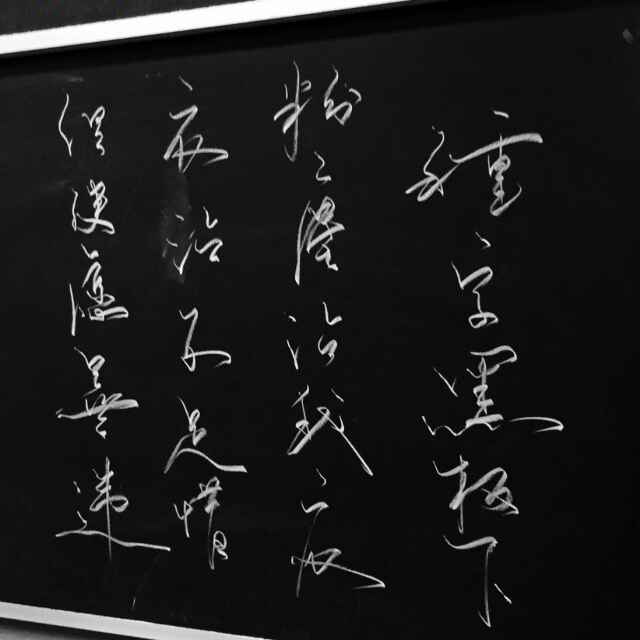 種字黑板下
粉塵沾我衣
衣沾不足惜
但使應無違